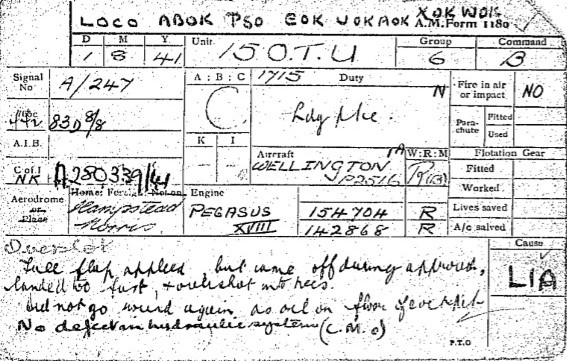 LOCO ABOK PSO EOK UOKAOK XOK WOK
A.M. Form 1180
D M Y Unit Group Command
1 8 41 15 O.T.U 6 B
Signal No A/247 A : B : C 1715 Duty N Fire in air or impact NO
C
832 8/8 Parachute Fitted
Used
A.I.B. K I
- -
Aircraft W:R:M Flotation Gear
C of I A280339/41 WELLINGTON
NK Fitted
Worked
Aerodrome or Place Home: Foreign: Not on Engine Lives saved
Hampstead Norris PEGASUS 154704 R A/c salved
XVIII 142868 R
Overshot Cause
Full flap applied, but came off during approach, L1A
landed too fast, & overshot into
Did not go round again, as oil on floor of cockpit
No defect in hydraulic system (C.M.O)
P.T.O